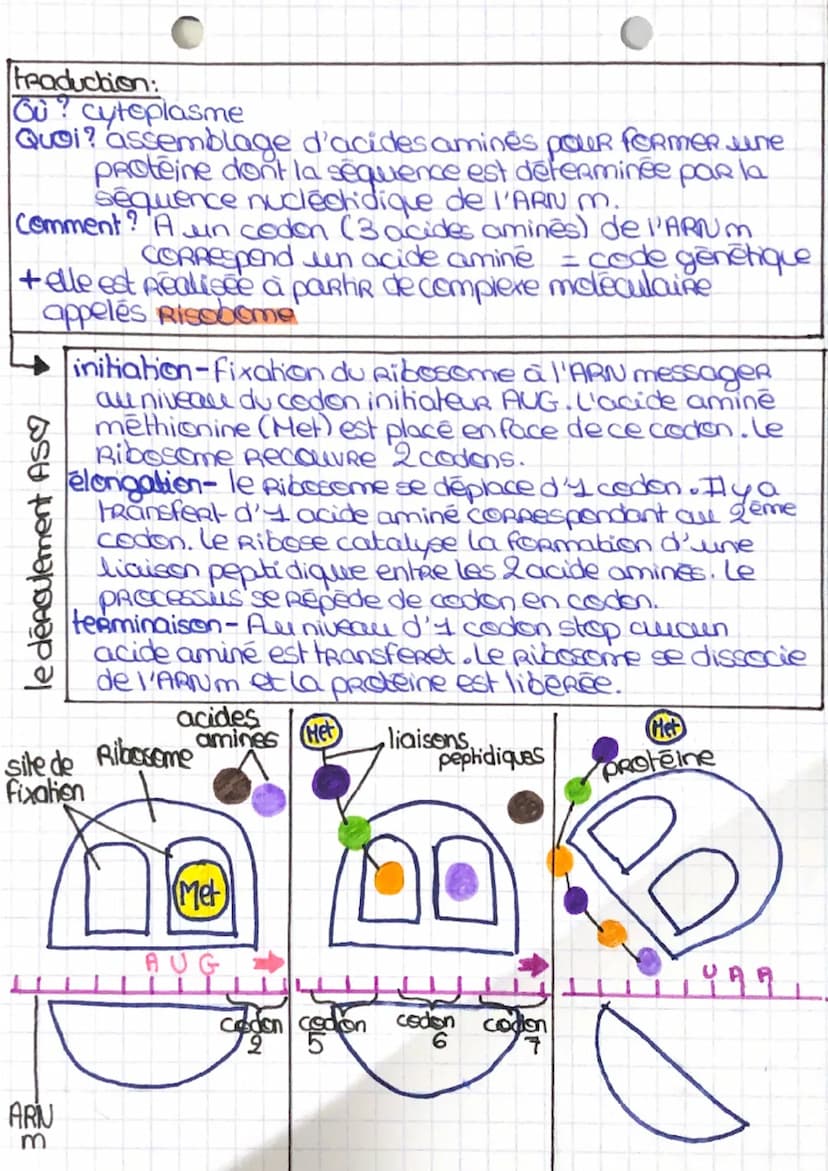 traduction:
Où? cytoplasme
Quoi? assemblage d'acides aminés pour former une
protéine dont la séquence est déterminée par la
séquence nucléotidique de l'ARN m.
Comment? A un codon (3 acides aminés) de l'ARNm
correspond un acide aminé = code génétique
+ elle est réalisée à partir de complexe moléculaire
appelés Risobome
le déroulement ASC
initiation - fixation du ribosome à l'ARN messager
au niveau du codon initiateur AUG. L'acide aminé
méthionine (Met) est placé en face de ce codon. Le
ribosome recouvre 2 codons.
élongation - le ribosome se déplace d'1 codon. Il y a
transfert d'1 acide aminé correspondant au 2ème
codon. Le ribose catalyse la formation d'une
liaison peptidique entre les 2 acide aminés. Le
processus se répède de codon en codon.
terminaison - Au niveau d'1 codon stop aucun
acide aminé est transferet. Le ribosome se dissocie
de l'ARNm et la protéine est libérée.
acides
amines
Ribosome
site de
fixation
Met
A U G
codon
2
ARN
m
Met
liaisons
peptidiques
codon
5
codon
6
codon
7
Met
protéine
U A A